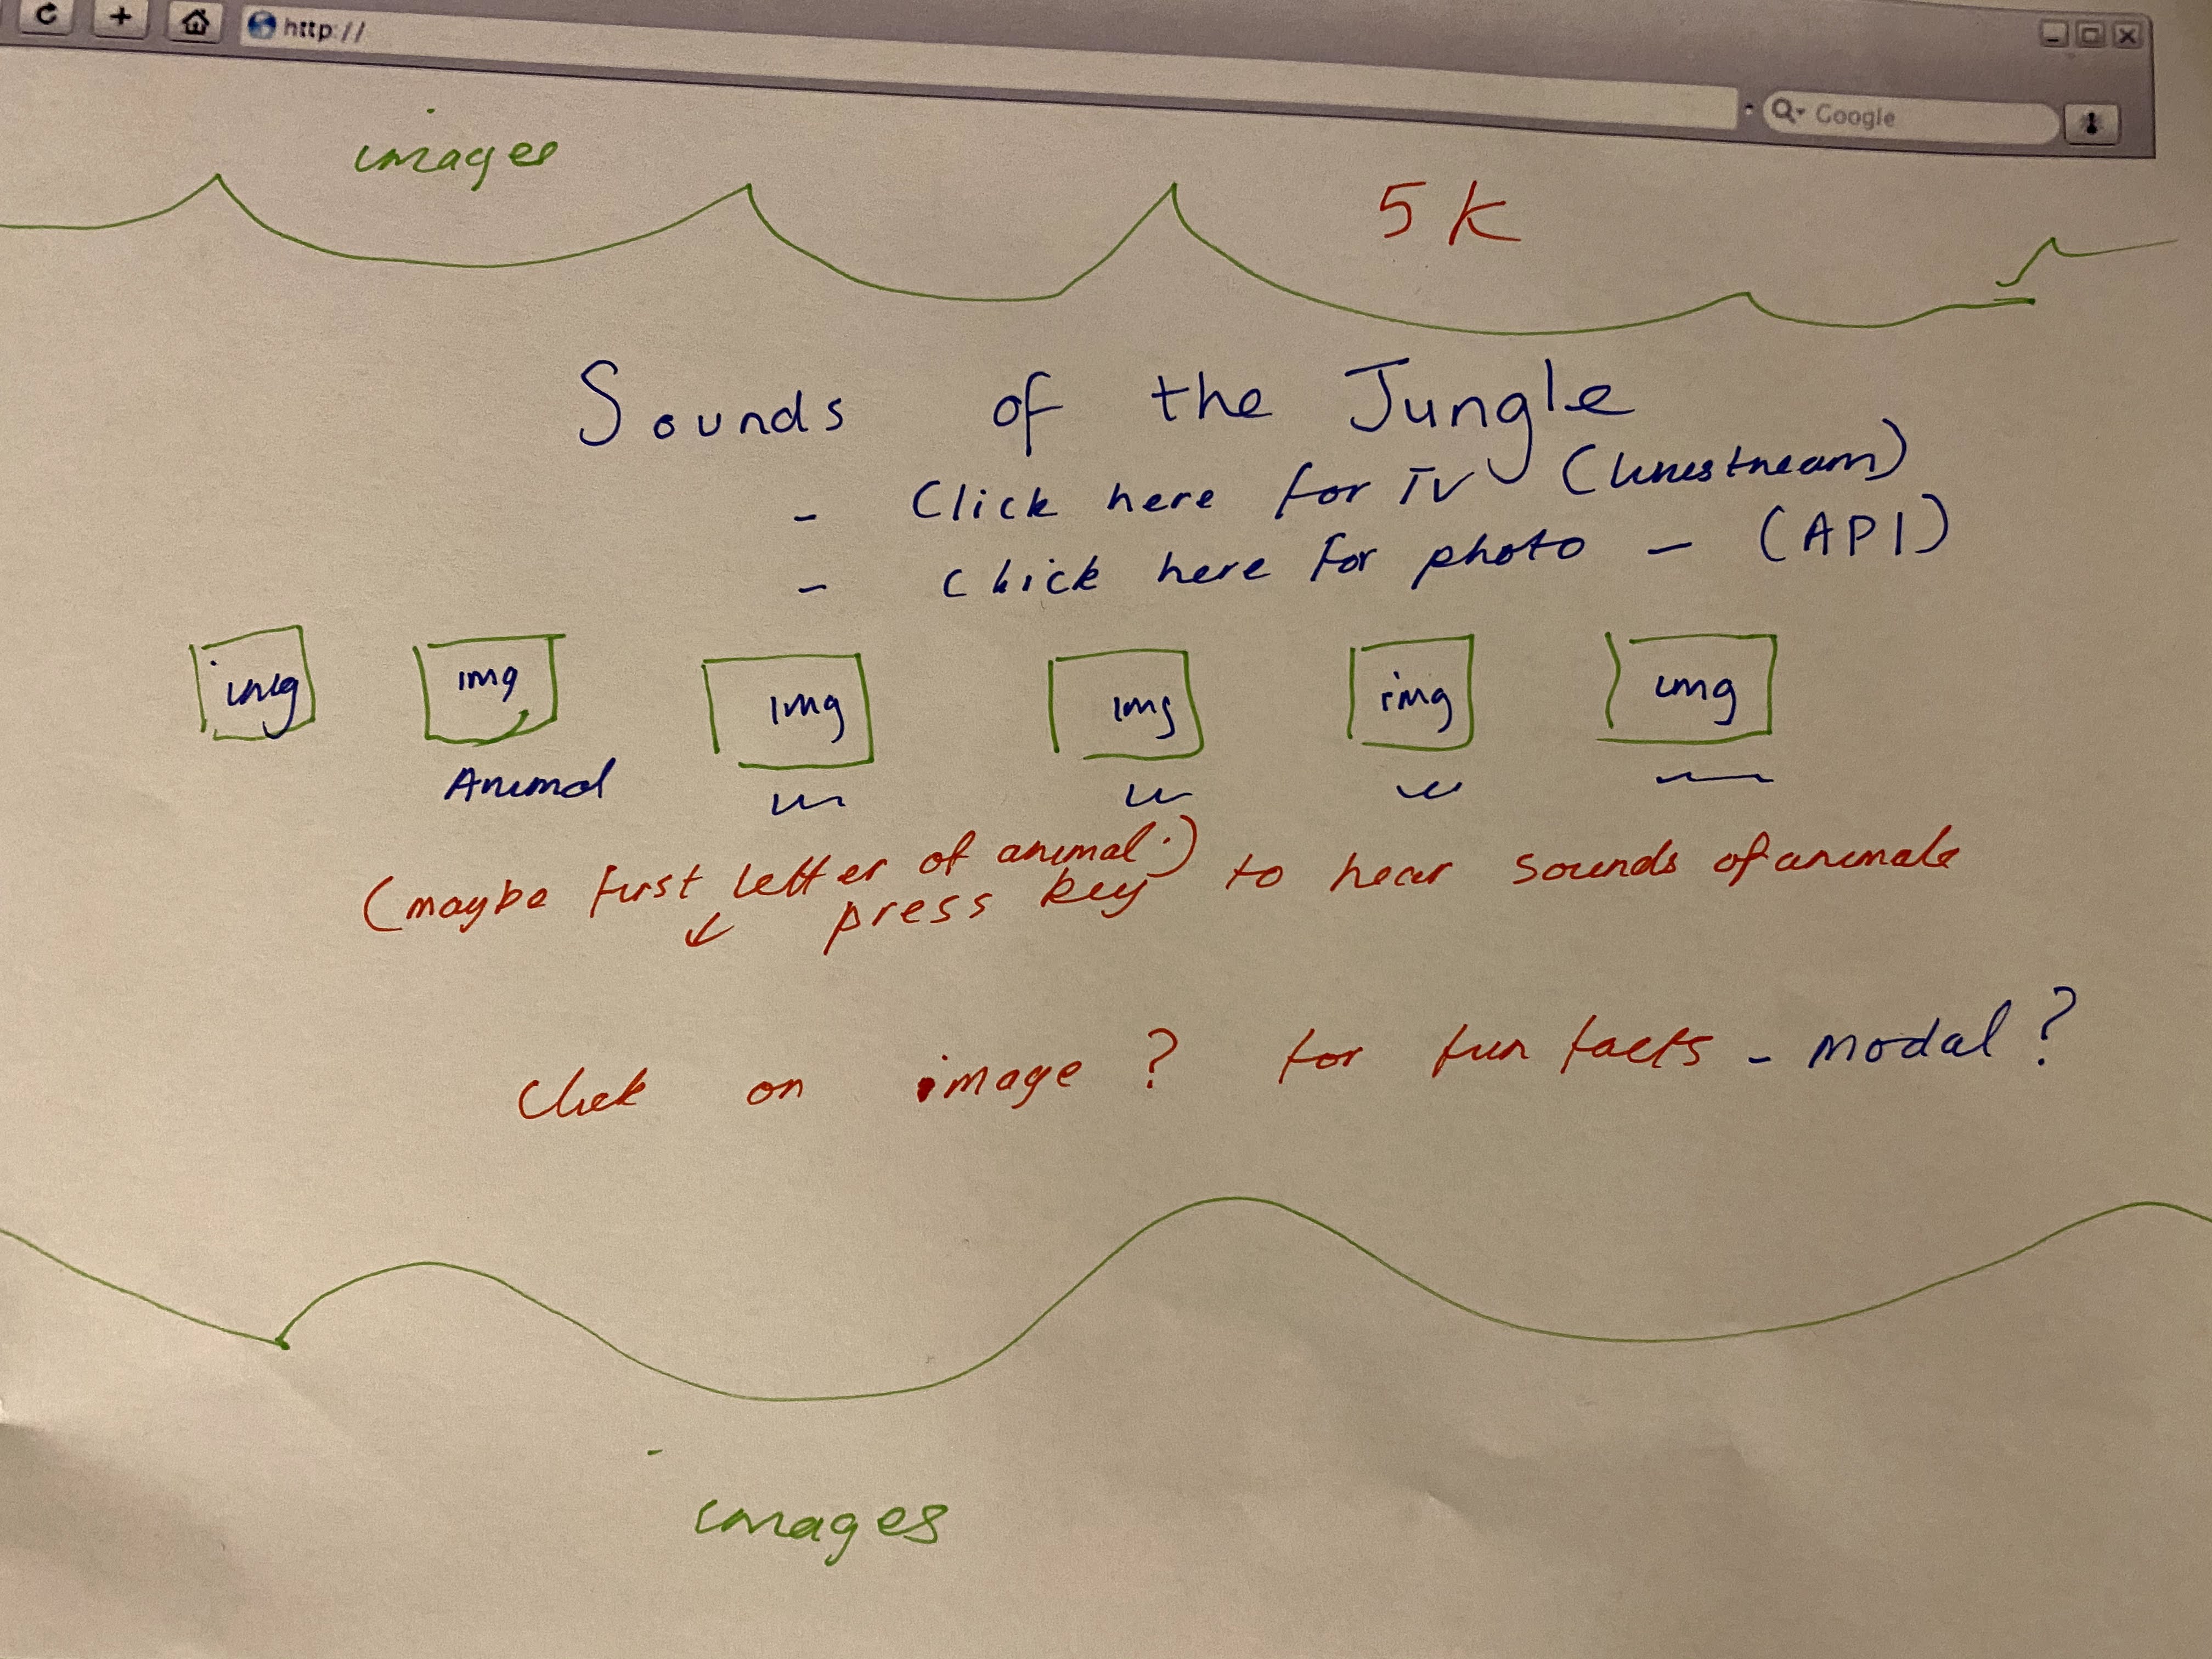 http://
Google
images
5K
Sounds of the Jungle
- Click here for TV (livestream)
- Click here for photo - (API)
img img img img img img
Animal
(maybe first letter of animal.) to hear sounds of animals
press key
Click on image ? for fun facts - modal ?
images